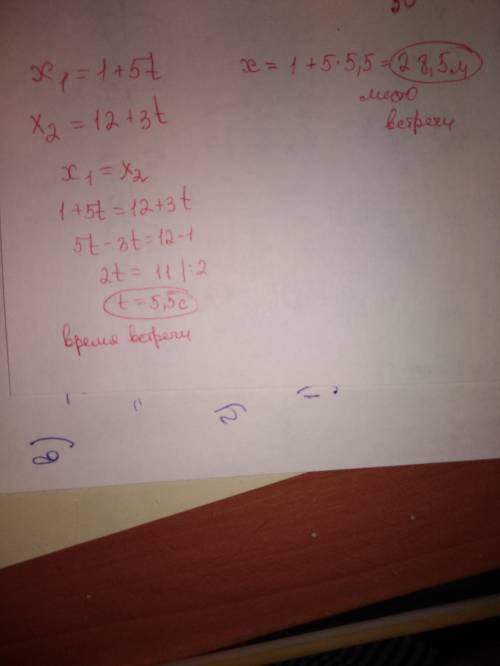 x₁ = 1 + 5t
x₂ = 12 + 3t
x₁ = x₂
1 + 5t = 12 + 3t
5t - 3t = 12 - 1
2t = 11 |:2
t = 5,5c
время встречи
x = 1 + 5·5,5 = 28,5м
место
встречи
в)